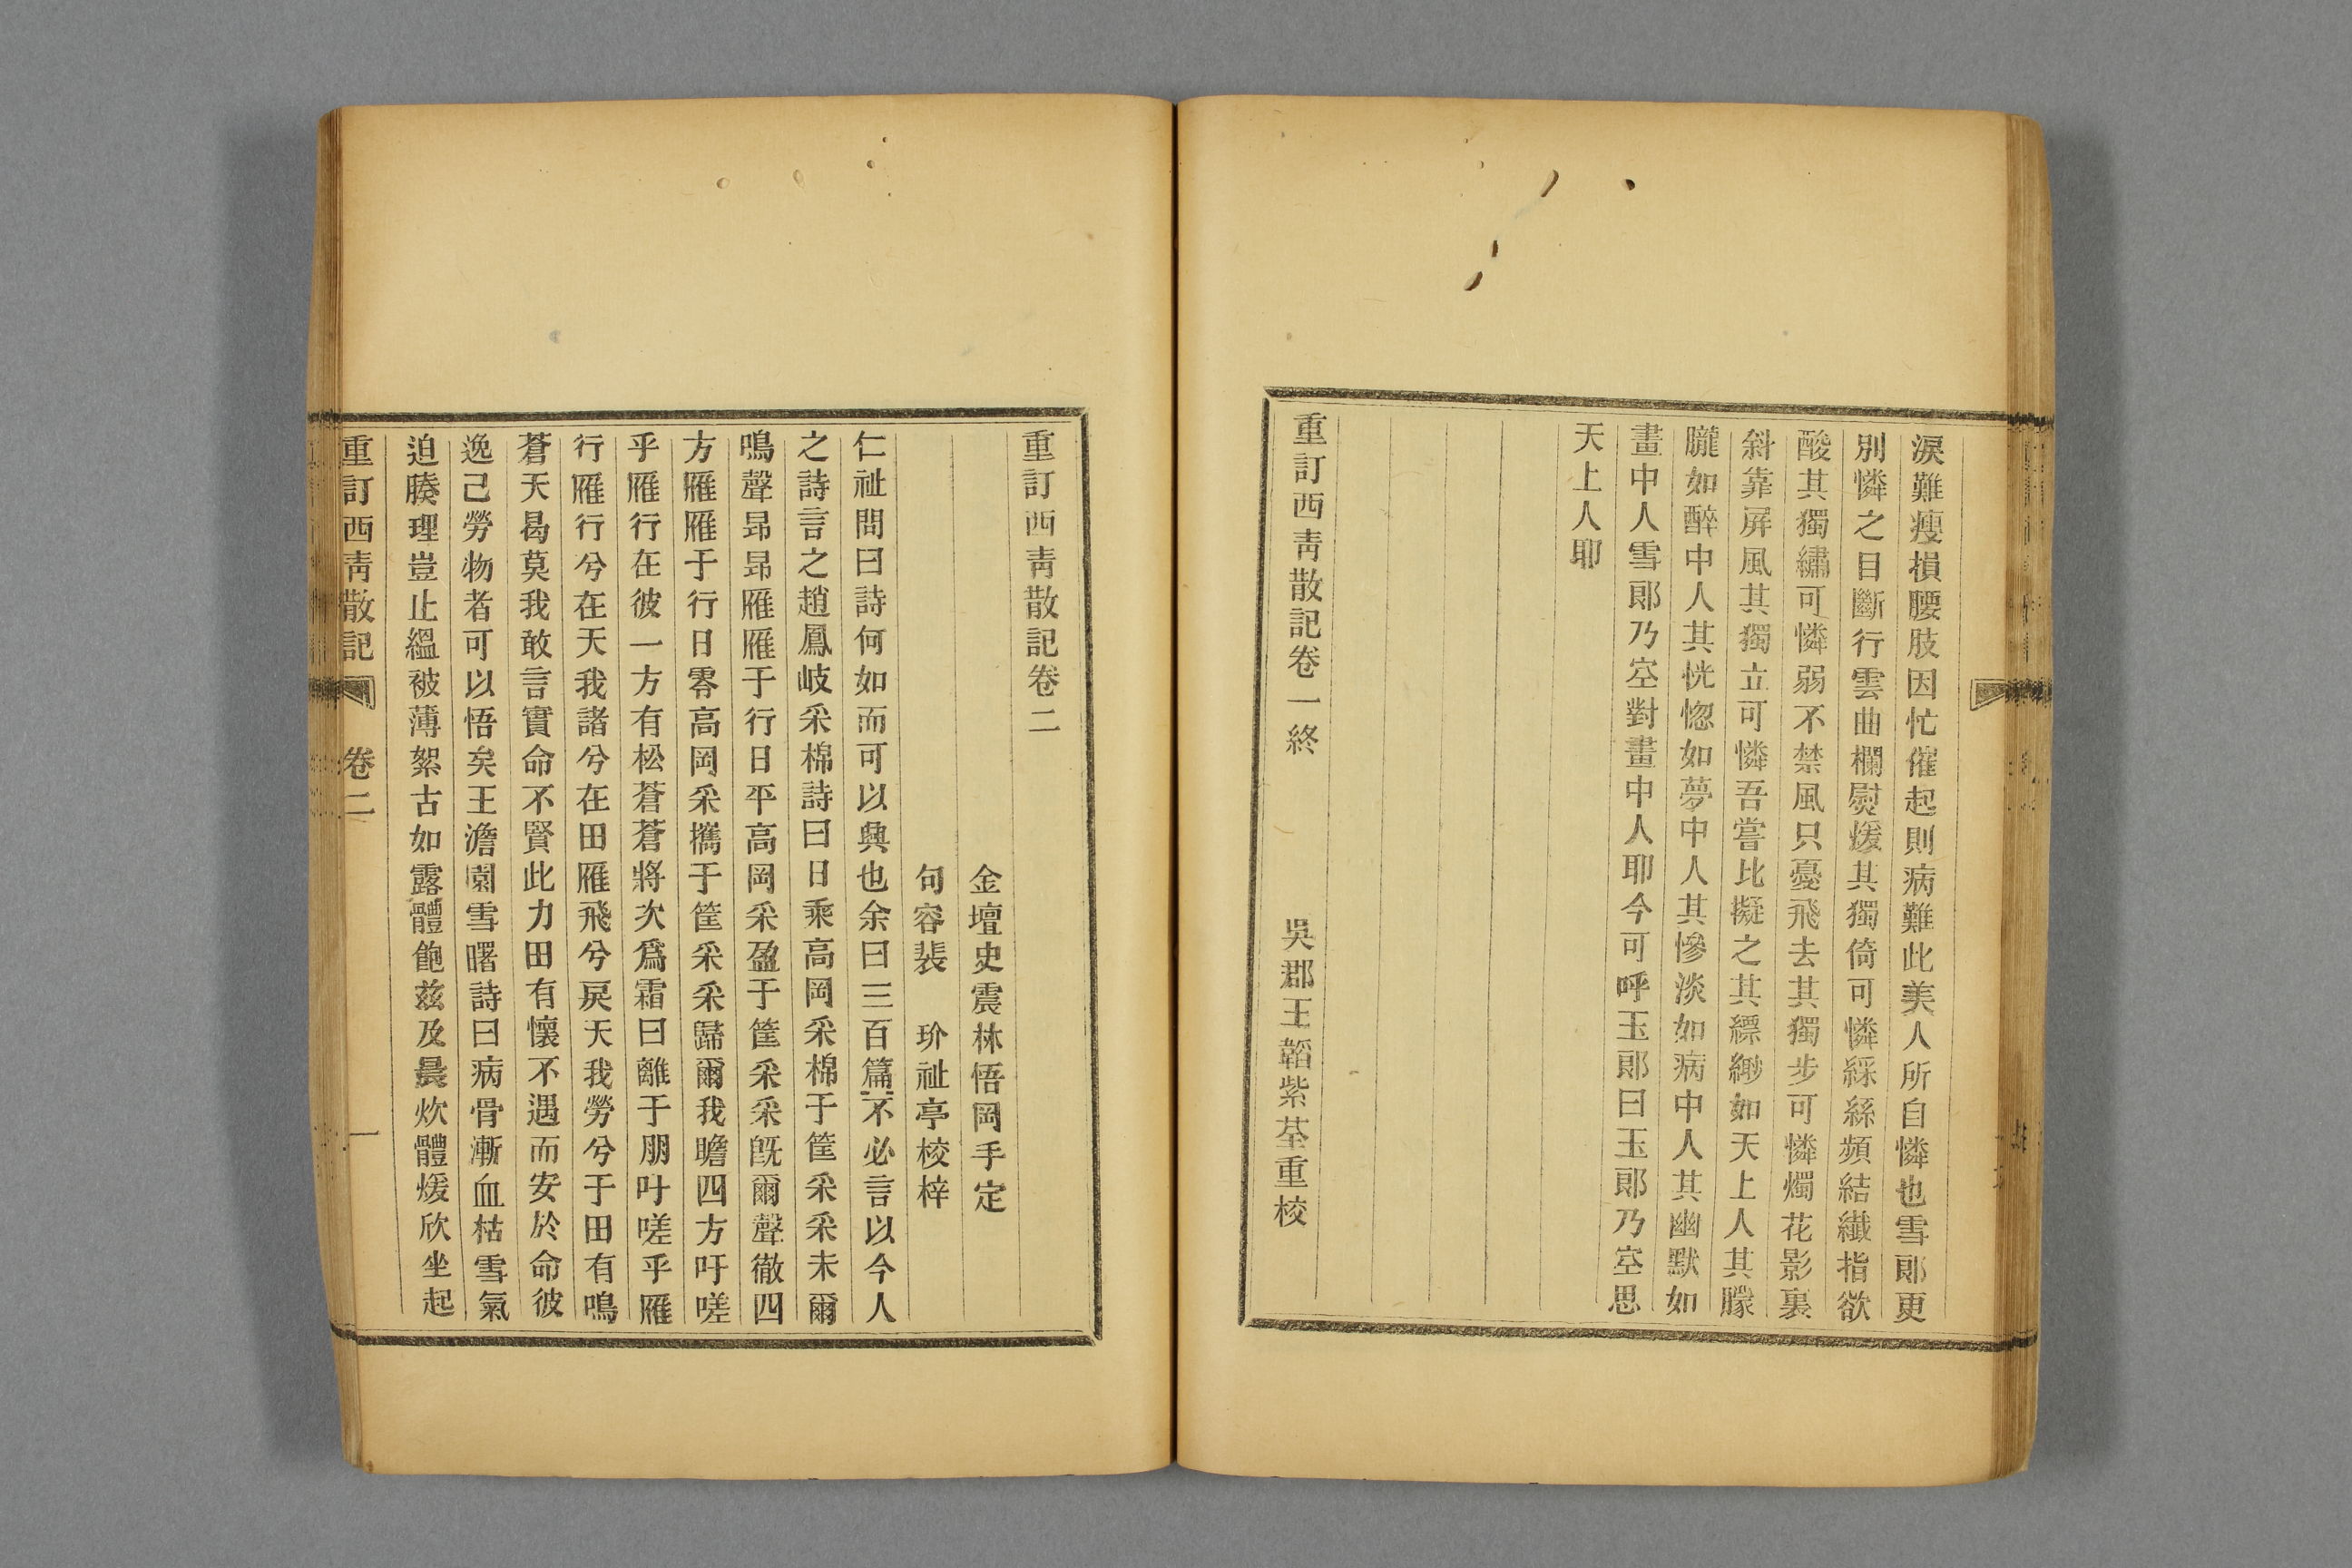 淚難瘦損腰肢因忙催起則病難此美人所自憐也雪郞更
別憐之目斷行雲曲欄熨煖其獨倚可憐綵絲頻結纖指欲
酸其獨繡可憐弱不禁風只憂飛去其獨步可憐燭花影裏
斜靠屏風其獨立可憐吾嘗比擬之其縹緲如天上人其朦
朧如醉中人其恍惚如夢中人其慘淡如病中人其幽默如
畫中人雪郞乃空對畫中人耶今可呼玉郞曰玉郞乃空思
天上人耶
重訂西靑散記卷一終 吳郡王韜紫荃重校
重訂西靑散記卷二
金壇史震林悟岡手定
句容裴 玠祉亭校梓
仁祉問曰詩何如而可以興也余曰三百篇不必言以今人
之詩言之趙鳳岐采棉詩曰日乘高岡采棉于筐采采未爾
鳴聲昻昻雁雁于行日平高岡采盈于筐采采旣爾聲徹四
方雁雁于行日零高岡采攜于筐采采歸爾我瞻四方吁嗟
乎雁行在彼一方有松蒼蒼將次爲霜曰離于朋叶嗟乎雁
行雁行兮在天我諸兮在田雁飛兮戾天我勞兮于田有鳴
蒼天曷莫我敢言實命不賢此力田有懷不遇而安於命彼
逸己勞物者可以悟矣王澹園雪曙詩曰病骨漸血枯雪氣
迫腠理豈止縕被薄絮古如露體飽茲及晨炊體煖欣坐起
重訂西靑散記 卷二 一